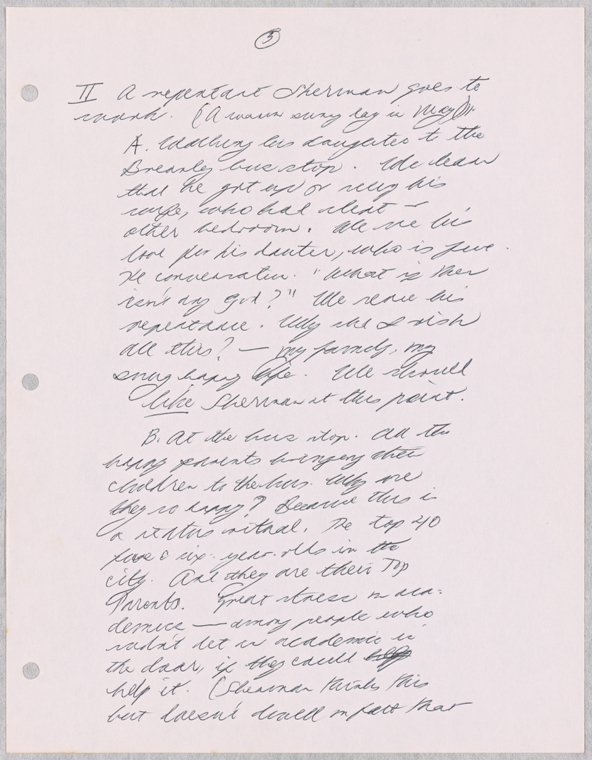 5
II A repentant Sherman goes to
work. (A warm sunny day in May)
A. Walking his daughter to the
Brearley bus stop. We learn
that he got up
wife, who had slept in
other bedroom. We see his
love for his dauter, who is five.
The conversation. "What if there
isn't any God?" We see his
repentance. Why did I risk
all this? — my family, my
snug happy life. We should
like Sherman at this point.
B. At the bus stop. All the
happy parents bringing their
children to the bus. Why are
they so happy? Because this is
a status ritual. The top 40
five & six-year-olds in the
city. And they are their Top
Parents. Great stress on aca-
demics — among people who
wdn't let an academic in
the door, if they could
help it. (Sherman thinks this
but doesn't dwell on fact that